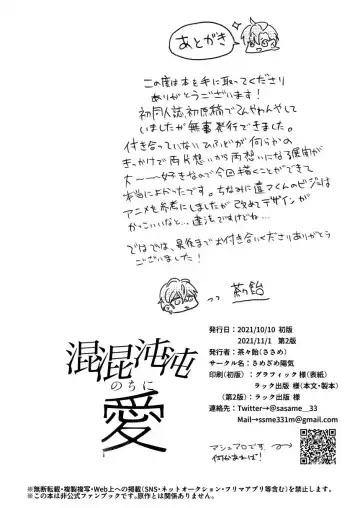 あとがき
この度は本を手に取ってくださり
ありがとうございます!
初同人誌、初原稿でてんやわんやして
いましたが無事発行できました。
付き合っていないひふどが何らかの
きっかけで両片想いから両想いになる展開が
大——好きなので今回描くことができて
本当によかったです。ちなみに違マくんのビジュは
アニメを参考にしましたが改めてデザインが
かっこいいなと…違法ですけどね…
ではでは、最後までお付き合いくださりありがとう
ございました!
茶々飴
混混沌沌
のちに
愛
発行日:2021/10/10 初版
2021/11/1 第2版
発行者:茶々飴(ささめ)
サークル名:さめざめ陽気
印刷(初版):グラフィック 様(表紙)
ラック出版 様(本文・製本)
(第2版):ラック出版 様
連絡先:Twitter→@sasame__33
Mail→ssme331m@gmail.com
マシュマロです→
何かあれば!
※無断転載・複製複写・Web上への掲載(SNS・ネットオークション・フリマアプリ等含む)を禁止します。
※この本は非公式ファンブックです。原作とは関係ありません。